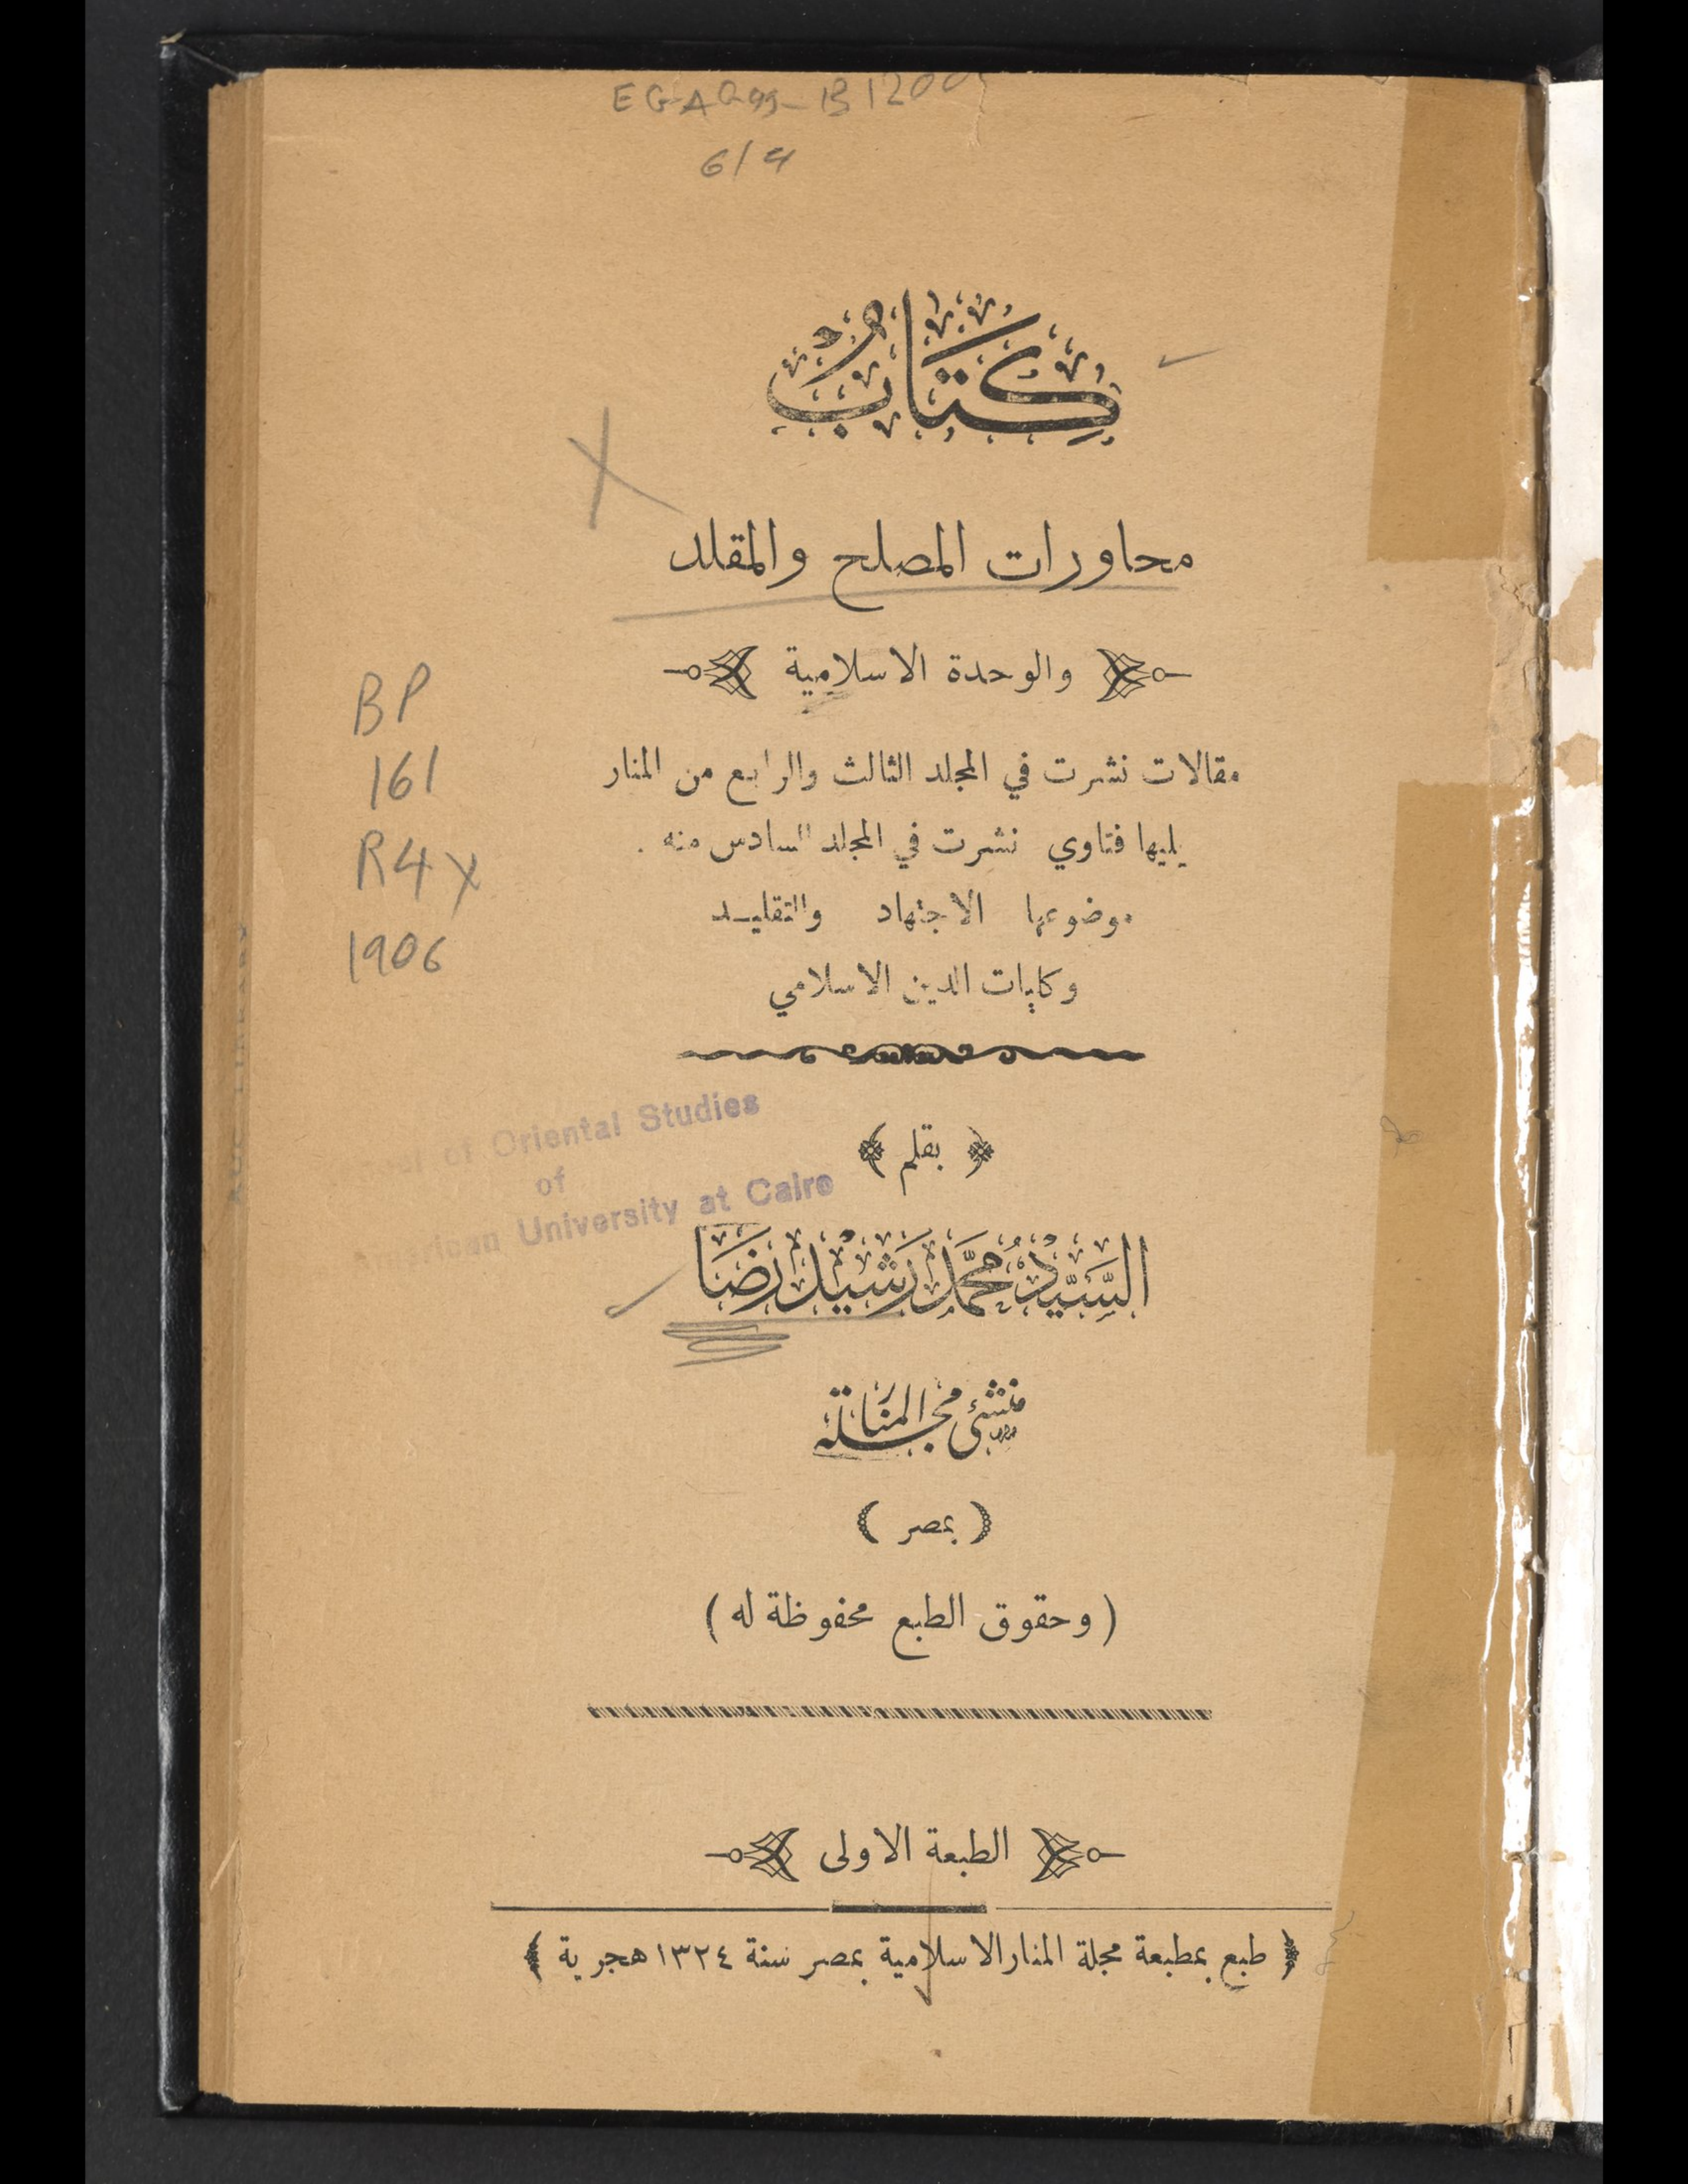 6/4
كِتَابُ
محاورات المصلح والمقلد
والوحدة الاسلامية
مقالات نشرت في المجلد الثالث والرابع من المنار
يليها فتاوي نشرت في المجلد السادس منه .
موضوعها الاجتهاد والتقليـد
وكليات الدين الاسلامي
BP
161
R4x
1906
of Oriental Studies
of
American University at Cairo
﴿ بقلم ﴾
السَّيِّدْ مُحَمَّد رَشِيْد رِضَا
منشئ مجلة المنار
( بمصر )
( وحقوق الطبع محفوظة له )
الطبعة الاولى
﴿ طبع بمطبعة مجلة المنار الاسلامية بمصر سنة ١٣٢٤ هجرية ﴾